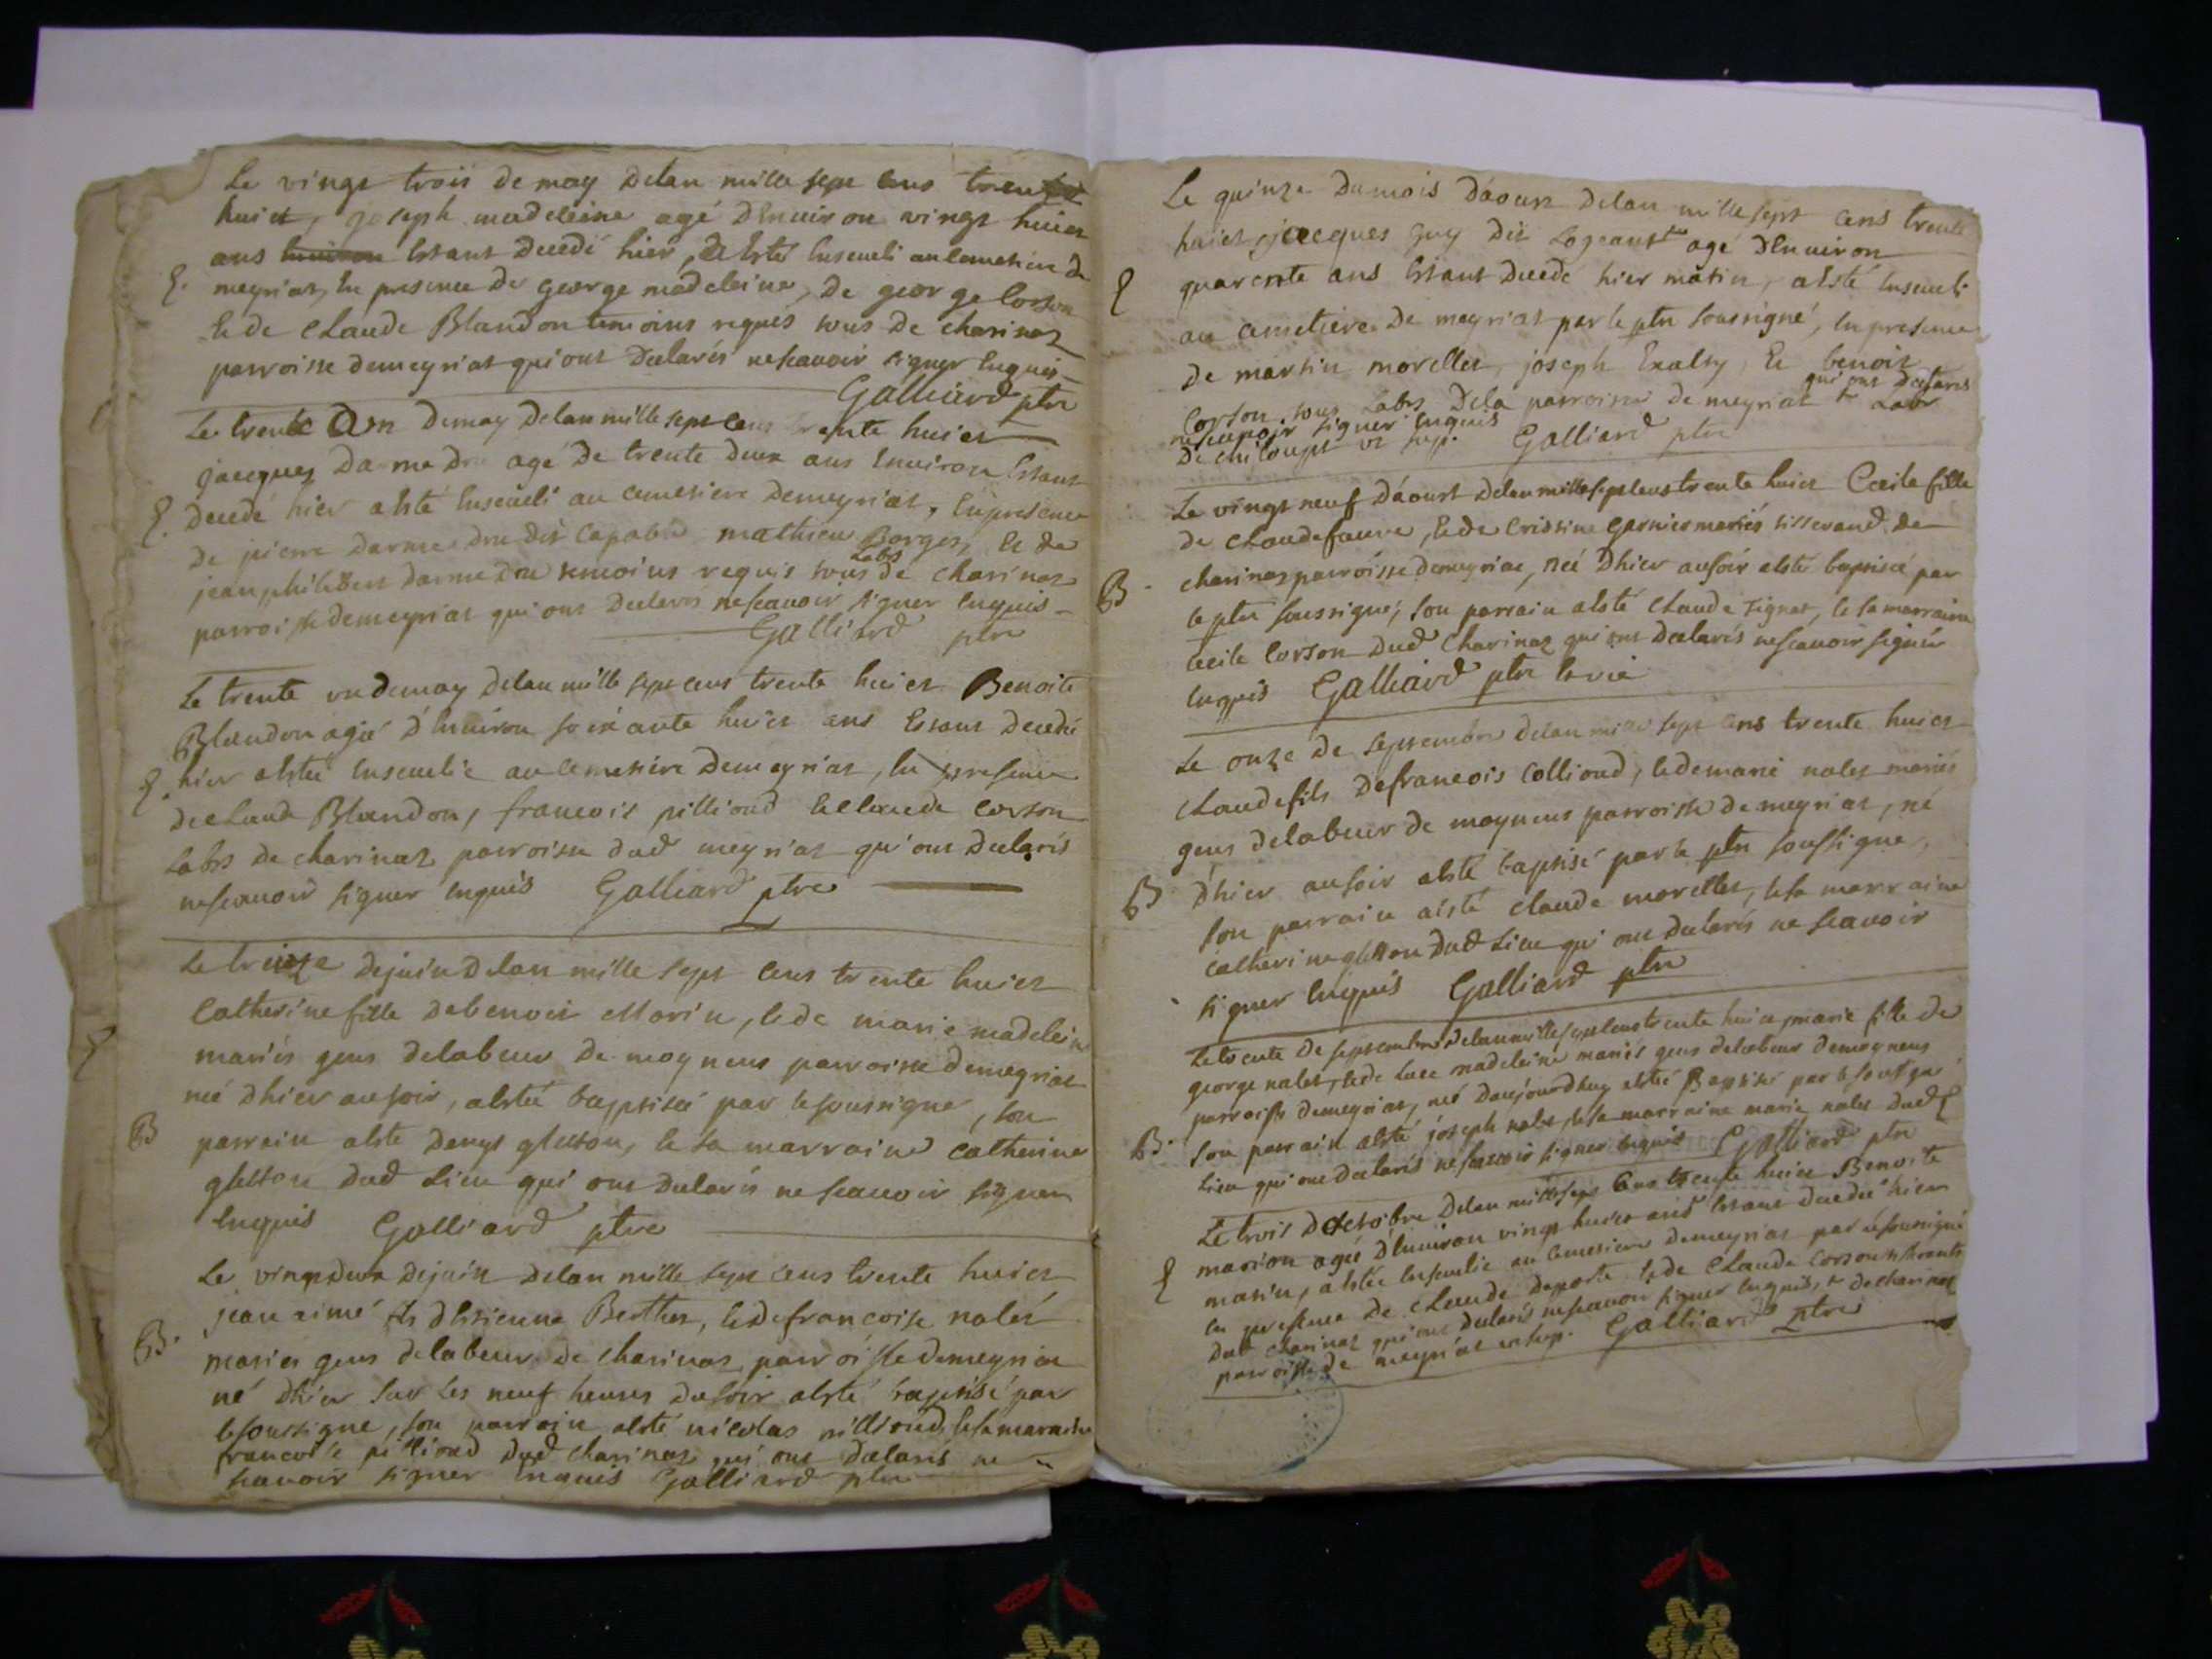 Le vingt trois de may delan mille sept cens trente
huict, joseph madeleine agé denuiron vingt huict
ans estant decedé hier, a esté enseueli au cemetiere de
E. meyriat, en presence de george madeleine, de george corson
et de claude Blandon temoins requis tous de charinaz
parroisse de meyriat qui ont declarés ne scauoir signer enquis
Galliard ptre
Le trente un de may delan mille sept cens trente huict
jacques darmedru agé de trente deux ans enuiron estant
E. decedé hier a esté enseueli au cemetiere de meyriat, en presence
de pierre darmedru dit mathieu Borges, et de
labrs
jean philibert darmedru temoins requis tous de charinaz
parroisse de meyriat qui ont declarés ne scauoir signer enquis
Galliard ptre
Le trente un de may delan mille sept cens trente huict Benoite
Blandon agée d'enuiron soixante huict ans estant decedée
E. hier a estée enseuelie au cemetiere de meyriat, en presence
de claude Blandon, francois pillioud et claude corson
labrs de charinaz parroisse dud meyriat qui ont declarés
ne scauoir signer enquis Galliard ptre
Le treize de juin delan mille sept cens trente huict
catherine fille de benoit Morin, et de marie madeleine
mariés gens de labeur de moyneus parroisse de meyriat
née dhier au soir, a estée baptisée par le soussigné, son
B parrain a esté denys gletton, et sa marraine catherine
gletton dud lieu qui ont declarés ne scauoir signer
enquis Galliard ptre
Le vingt deux de juin delan mille sept cens trente huict
jean aimé fils d'estienne Berthet, et de francoise nalet
B. mariés gens de labeur de charinaz parroisse de meyriat
né dhier sur les neuf heures du soir a esté baptisé par
le soussigné, son parrain a esté nicolas pillioud, et sa marraine
francoise pillioud dud charinaz qui ont declarés ne
scauoir signer enquis Galliard ptre
Le quinze du mois d'aoust delan mille sept cens trente
huict, jacques guy dit agé denuiron
E quarente ans estant decedé hier matin, a esté enseueli
au cimetiere de meyriat par le ptre soussigné, en presence
de martin morellet, joseph et benoit
qui ont declarés
corson tous labrs de la parroisse de meyriat
ne scauoir signer enquis
Galliard ptre
Le vingt neuf d'aoust delan mille sept cens trente huict Cecile fille
de claude faure, et de cristine garnier mariés tisserand de
B. charinaz parroisse de meyriat, née dhier au soir a esté baptisée par
le ptre soussigné, son parrain a esté claude tignat, et sa marraine
cecile corson dud charinaz qui ont declarés ne scauoir signer
enquis Galliard ptre
Le onze de septembre delan mille sept cens trente huict
claude fils de francois collioud, et de marie nalet mariés
gens de labeur de moyneus parroisse de meyriat, né
B. dhier au soir a esté baptisé par le ptre soussigné,
son parrain a esté claude morellet, et sa marraine
catherine gletton dud lieu qui ont declarés ne scauoir
signer enquis Galliard ptre
Le trente de septembre delan mille sept cens trente huict, marie fille de
george nalet, et de luce madeleine mariés gens de labeur de moyneus
parroisse de meyriat, née d'aujourdhuy a estée Baptisée par le soussigné
B. son parrain a esté joseph nalet, et sa marraine marie nalet dud
lieu qui ont declarés ne scauoir signer enquis Galliard ptre
Le trois d'octobre delan mille sept cens trente huict Benoite
E marion agée d'enuiron vingt huict ans estant decedée hier
matin, a estée enseuelie au cemetiere de meyriat par le soussigné
en presence de claude et de claude corson
dud charinaz qui ont declarés ne scauoir signer enquis, de charinaz
parroisse de meyriat Galliard ptre